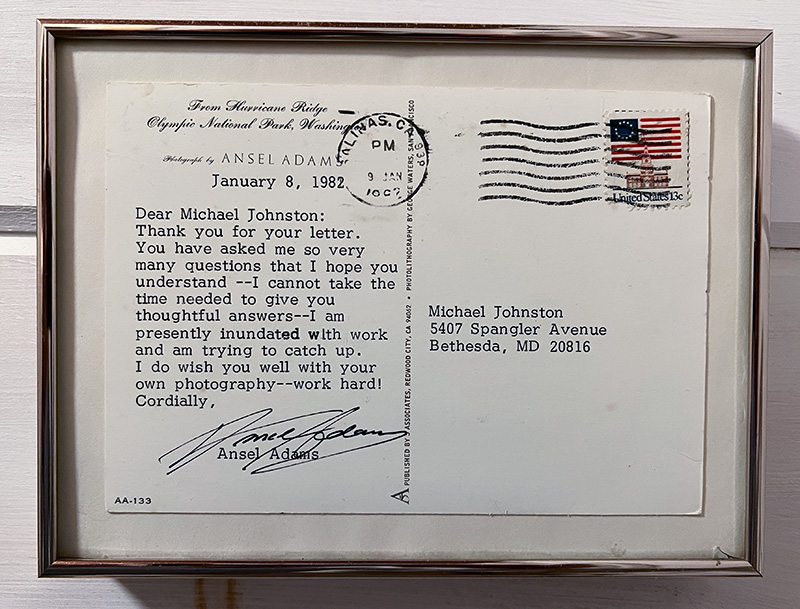 From Hurricane Ridge
Olympic National Park, Washing
Photograph by ANSEL ADAMS
January 8, 1982
Dear Michael Johnston:
Thank you for your letter.
You have asked me so very
many questions that I hope you
understand --I cannot take the
time needed to give you
thoughtful answers--I am
presently inundated with work
and am trying to catch up.
I do wish you well with your
own photography--work hard!
Cordially,
Ansel Adams
Ansel Adams
AA-133
PUBLISHED BY ASSOCIATES, REDWOOD CITY, CA 94062 • PHOTOLITHOGRAPHY BY GEORGE WATERS, SAN FRANCISCO
SALINAS, CA 939
PM
9 JAN
1982
United States 13c
Michael Johnston
5407 Spangler Avenue
Bethesda, MD 20816